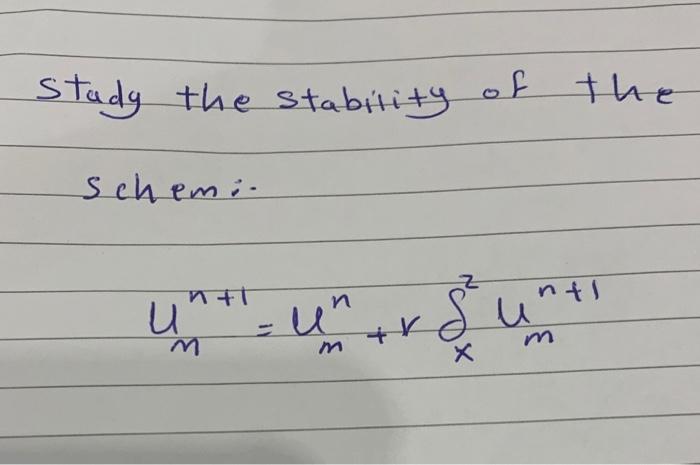 study the stability of the
schem:-
u^{n+1}_m = u^n_m + r δ^2_x u^{n+1}_m